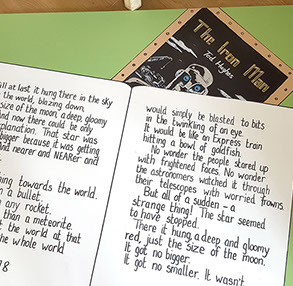 The Iron Man
Ted Hughes
ill at last it hung there in the sky
the world, blazing down,
size of the moon, a deep, gloomy
and now there could be only
xplanation. That star was
bigger because it was getting
and nearer and NEARer and
hing towards the world.
a bullet.
any rocket.
than a meteorite.
the world at that
he whole world
98
would simply be blasted to bits
in the twinkling of an eye.
It would be like an Express train
hitting a bowl of goldfish.
No wonder the people stared up
with frightened faces. No wonder
the astronomers watched it through
their telescopes with worried frowns.
But all of a sudden - a
strange thing! The star seemed
to have stopped.
There it hung, a deep and gloomy
red, just the size of the moon.
It got no bigger.
It got no smaller. It wasn't